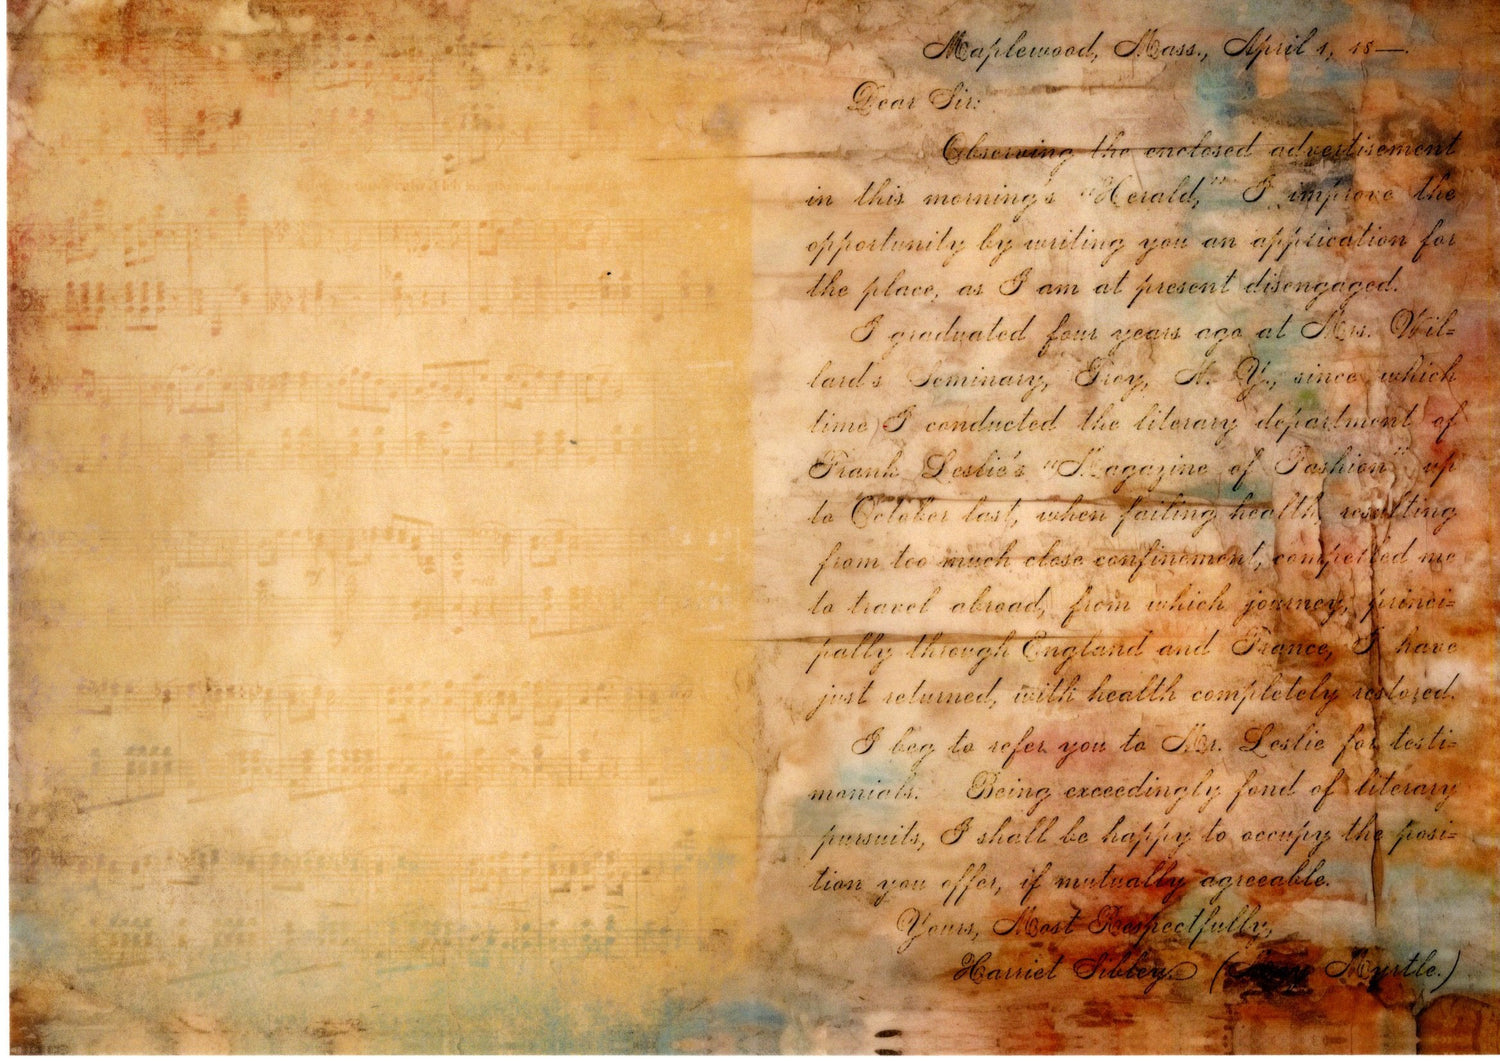 Maplewood, Mass., April 1, 18—.
Dear Sir:
Observing the enclosed advertisement
in this morning's "Herald," I improve the
opportunity by writing you an application for
the place, as I am at present disengaged.
I graduated four years ago at Mrs. Wil=
lard's Seminary, Troy, N. Y., since which
time I conducted the literary department of
Frank Leslie's "Magazine of Fashion" up
to October last, when failing health, resulting
from too much close confinement, compelled me
to travel abroad, from which journey, princi=
pally through England and France, I have
just returned, with health completely restored.
I beg to refer you to Mr. Leslie for testi=
monials. Being exceedingly fond of literary
pursuits, I shall be happy to occupy the posi=
tion you offer, if mutually agreeable.
Yours, Most Respectfully,
Harriet Sibley. ( Myrtle.)